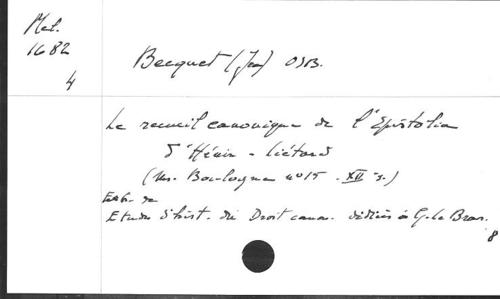 Mel.
1682
4
Becquet (Jean) OSB.
Le recueil canonique de l'Epistolia
d'Hénin-Liétard
(Ms. Boulogne nº 15 - XII s.)
Extr. de
Etudes d'hist. du Droit canon. dédiées à G. Le Bras.
8